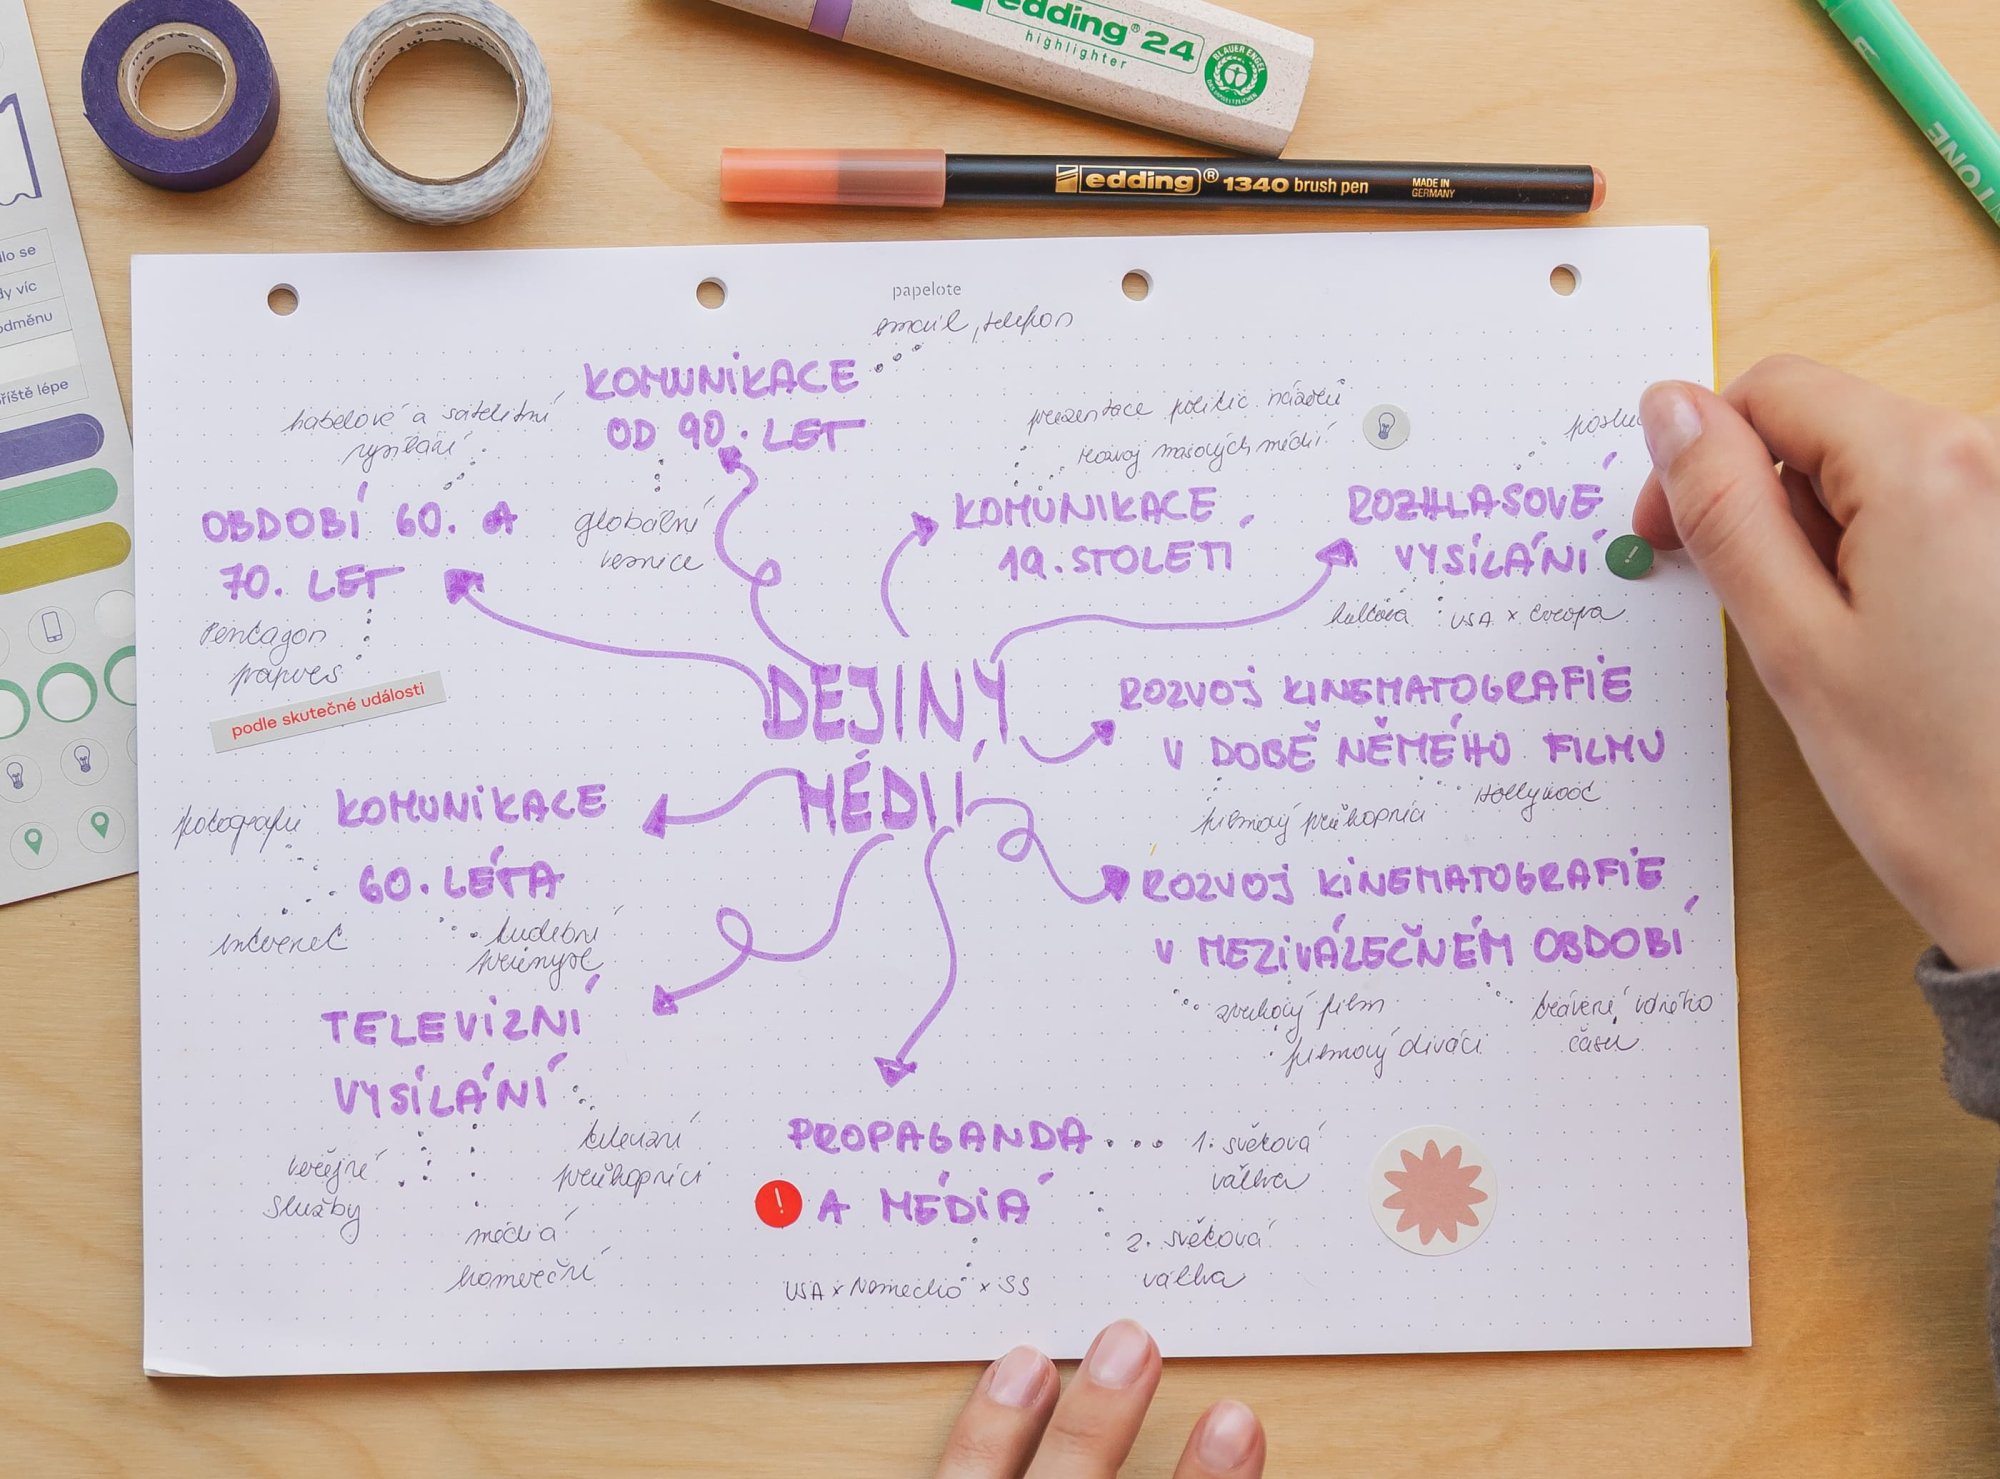 edding® 24
highlighter
BLAUER ENGEL
edding® 1340 brush pen
MADE IN
GERMANY
TONE
lo se
dy víc
odměnu
příště lépe
papelote
email, telefon
KOMUNIKACE
OD 90. LET
kabelové a satelitní
vysílání
globální
vesnice
OBDOBÍ 60. A
70. LET
Pentagon
papers
podle skutečné události
prezentace politic. názorů
rozvoj masových médií
KOMUNIKACE
19. STOLETÍ
ROZHLASOVÉ
VYSÍLÁNÍ
!
kultura
USA x Evropa
DEJINY
MÉDIÍ
ROZVOJ KINEMATOGRAFIE
V DOBĚ NĚMÉHO FILMU
filmový průkopníci
Hollywood
KOMUNIKACE
60. LÉTA
fotografie
internet
hudební
průmysl
ROZVOJ KINEMATOGRAFIE
V MEZIVÁLEČNÉM OBDOBÍ
zvukový film
filmový diváci
trávení volného
času
TELEVIZNÍ
VYSÍLÁNÍ
veřejné
služby
média
komerční
televizní
průkopníci
PROPAGANDA
! A MÉDIA
1. světová
válka
2. světová
válka
USA x Německo x SS